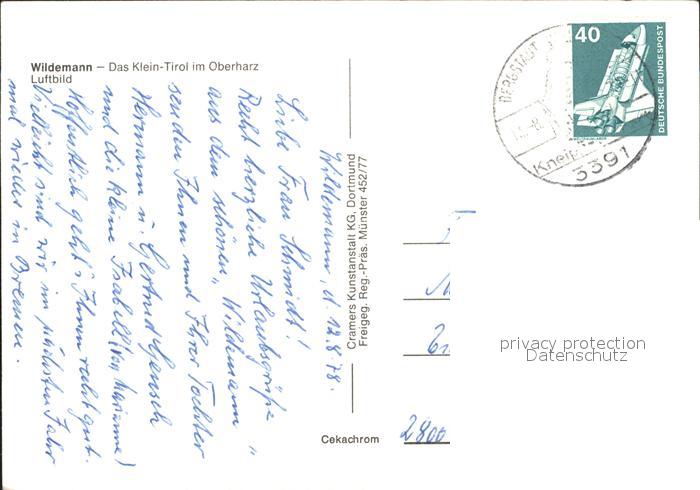 Wildemann – Das Klein-Tirol im Oberharz
Luftbild
Wildemann, d. 12.8.78.
Liebe Frau Schmidt!
Recht herzliche Urlaubsgrüße
aus dem schönen „Wildemann“
senden Ihnen und Ihrer Tochter
Hermann u. Gertrud
und die kleine Isabell (von Marianne)
Hoffentlich geht's Ihnen recht gut.
Vielleicht sind wir im nächsten Jahr
mal wieder in Bremen.
Cramers Kunstanstalt KG, Dortmund
Freigeg. Reg.-Präs. Münster 452/77
Cekachrom
40
DEUTSCHE BUNDESPOST
BERGSTADT
Kneip
3391
2800
privacy protection
Datenschutz